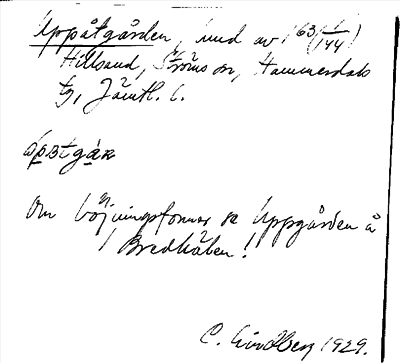 Uppåtgården, hmd av 163 (1/144)
Hillsand, Ströms sn, Hammerdals
tg, Jämtl. l.
åpatgár
Om böjningsformer se Uppgården å
Bredkälen!
C. Lindberg 1929.